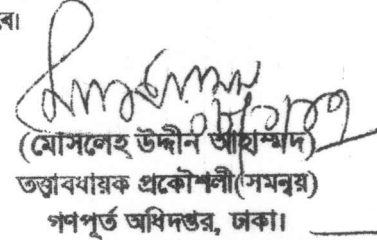 বে।
(মোসলেহ্ উদ্দীন আহাম্মদ)
তত্ত্বাবধায়ক প্রকৌশলী(সমন্বয়)
গণপূর্ত অধিদপ্তর, ঢাকা।